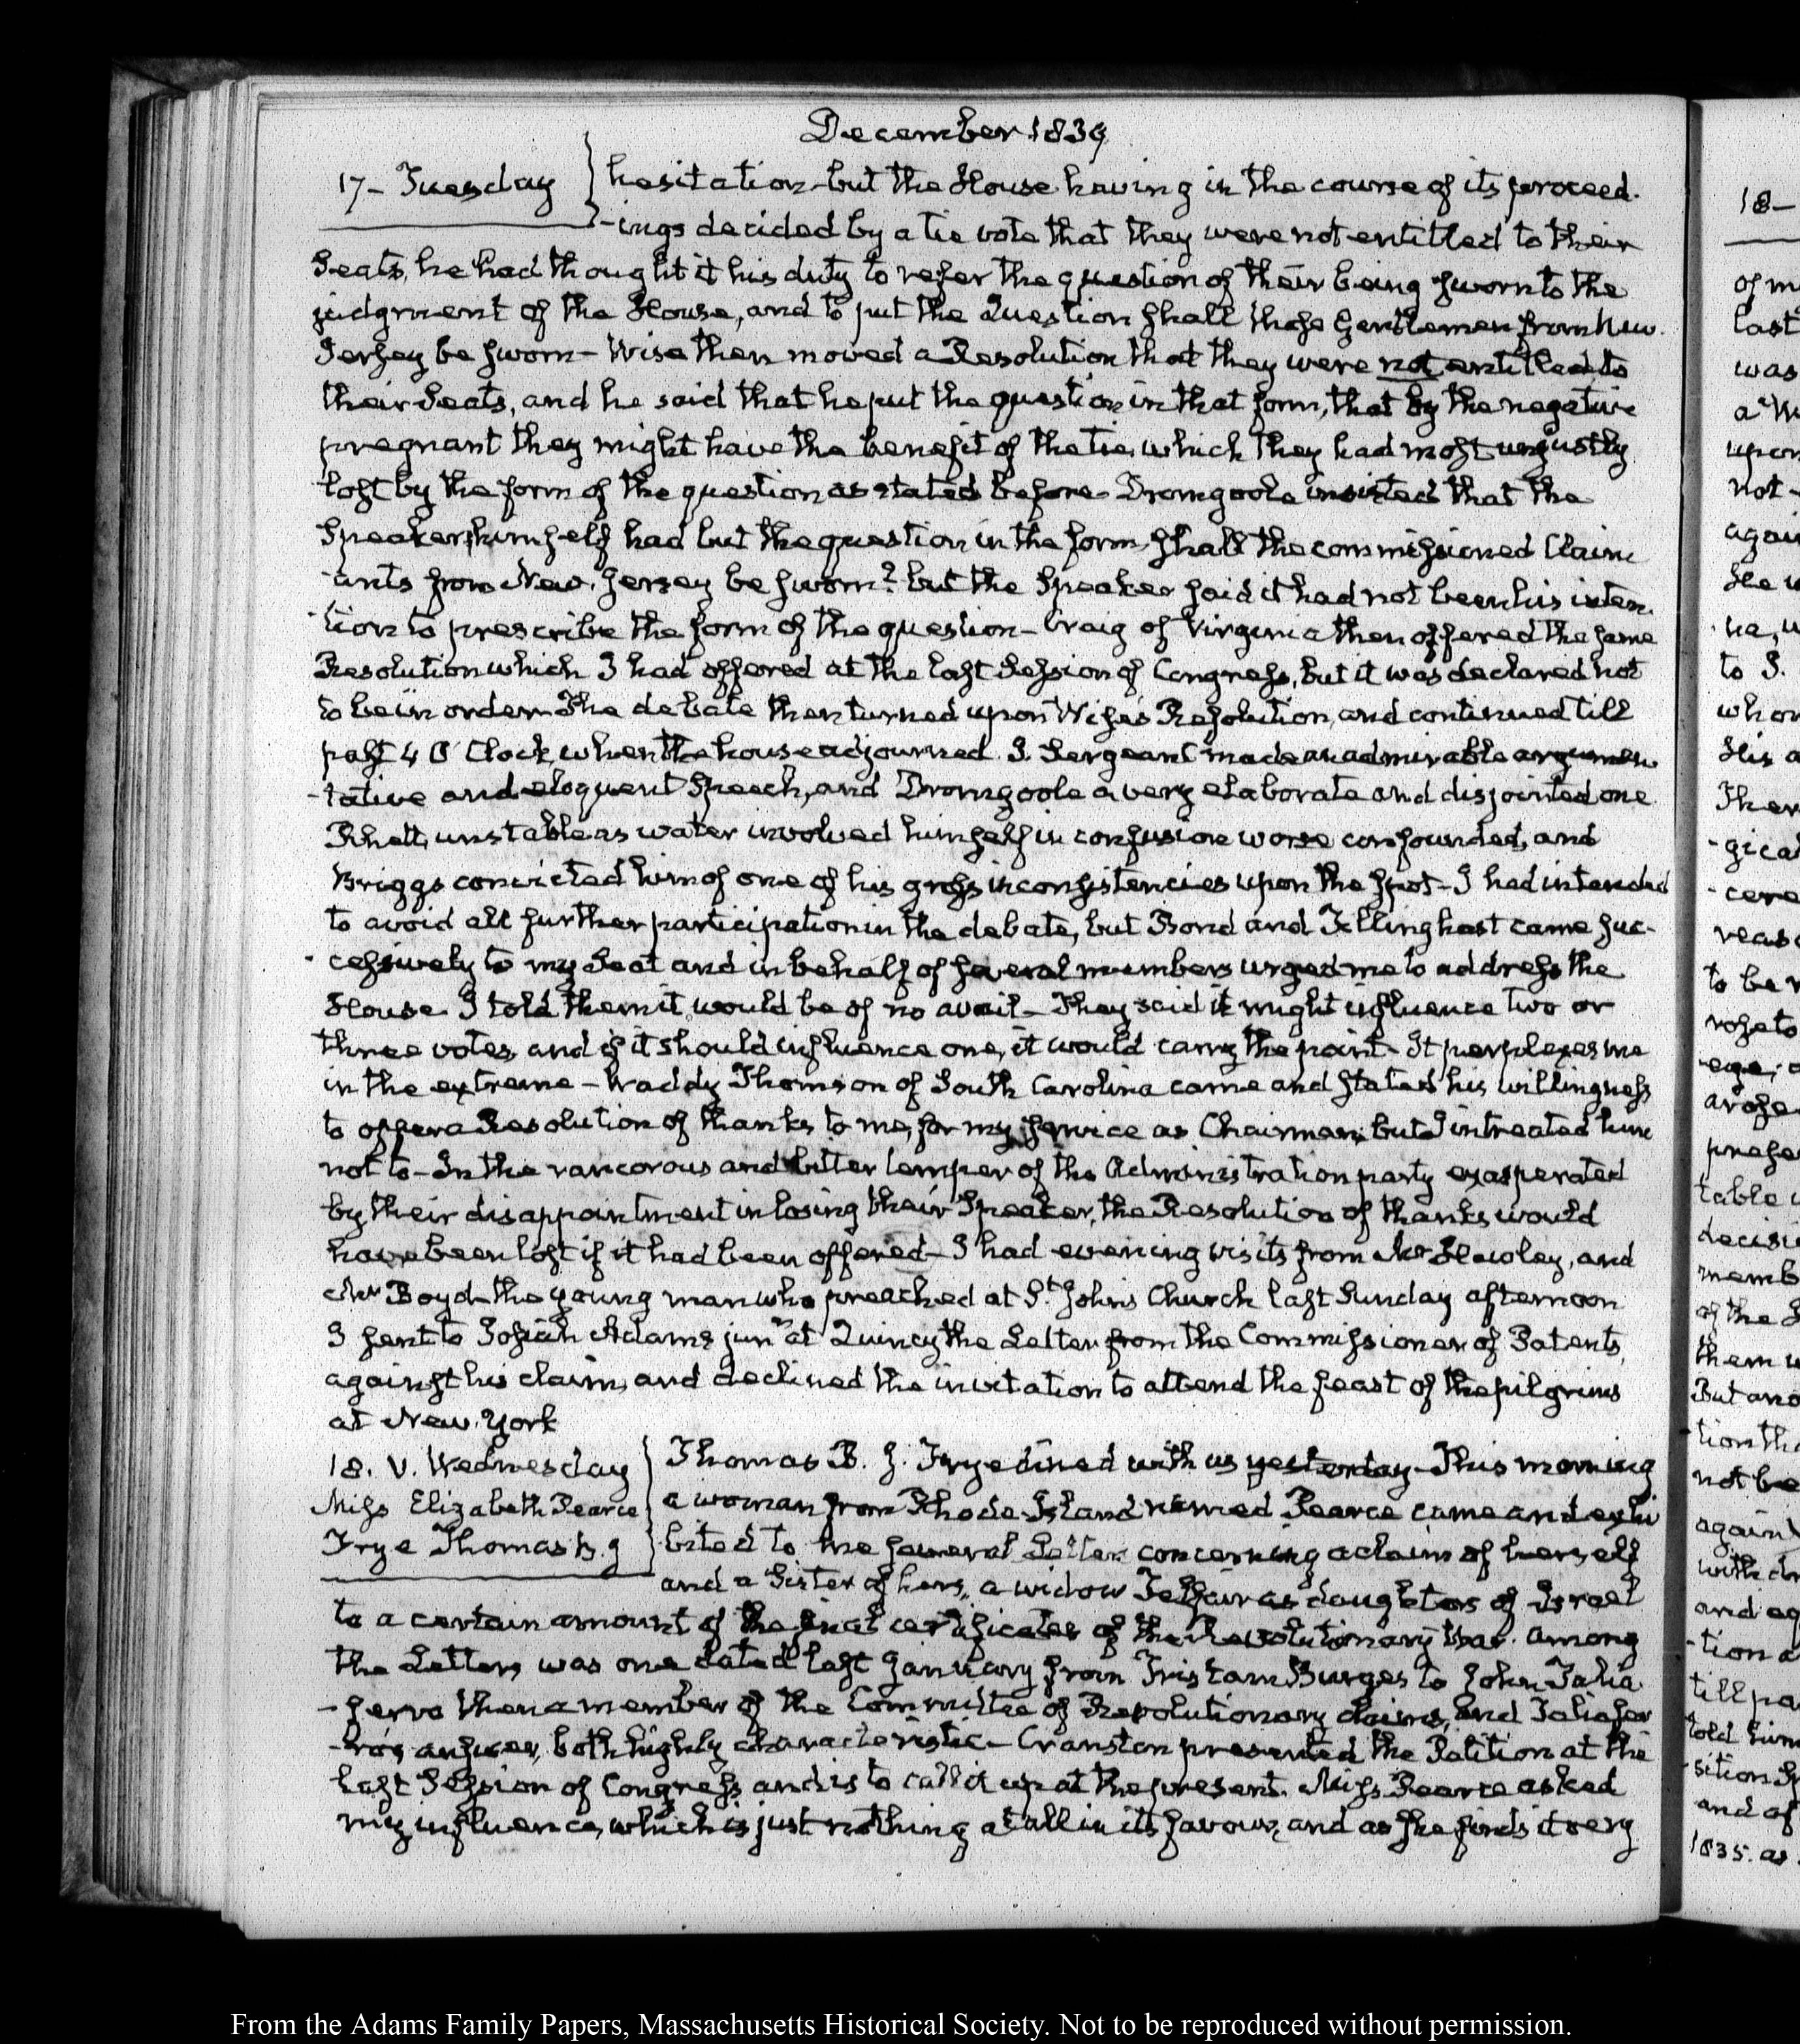 December 1839
17- Tuesday } hesitation but the House having in the course of its proceed-
-ings decided by a tie vote that they were not entitled to their
Seats, he had thought it his duty to refer the question of their being sworn to the
judgment of the House, and to put the Question shall these Gentlemen from New
Jersey be sworn- Wise then moved a Resolution that they were not entitled to
their Seats, and he said that he put the question in that form, that by the negative
pregnant they might have the benefit of the tie, which they had most unjustly
lost by the form of the question as stated before- Dromgoole insisted that the
Speaker himself had but the question in the form, shall the commissioned Claim
-ants from New Jersey be sworn? but the Speaker said it had not been his inten
-tion to prescribe the form of the question- Craig of Virginia then offered the same
Resolution which I had offered at the last Session of Congress, but it was declared not
to be in order- The debate then turned upon Wise's Resolution, and continued till
past 4 O'Clock, when the house adjourned. J. Sergeant made an admirable argumen
-tative and eloquent Speech, and Dromgoole a very elaborate and disjointed one
Rhett, unstable as water involved himself in confusion worse confounded, and
Briggs convicted him of one of his gross inconsistencies upon the spot- I had intended
to avoid all further participation in the debate, but Bond and Tillinghast came suc-
-cessively to my Seat and in behalf of several members urged me to address the
House. I told them it would be of no avail- They said it might influence two or
three votes, and if it should influence one, it would carry the point- It perplexes me
in the extreme- Waddy Thompson of South Carolina came and stated his willingness
to offer a Resolution of thanks to me, for my service as Chairman; but I intreated him
not to- In the rancorous and bitter temper of the Administration party exasperated
by their disappointment in losing their Speaker, the Resolution of thanks would
have been lost if it had been offered- I had evening visits from Mr Hawley, and
Mr Boyd the young man who preached at St. John's Church last Sunday afternoon
I sent to Josiah Adams junr at Quincy the Letter from the Commissioner of Patents,
against his claim, and declined the invitation to attend the feast of the pilgrims
at New-York
18. V. Wednesday } Thomas B. J. Frye dined with us yesterday- This morning
Miss Elizabeth Pearce } a woman from Rhode-Island named Pearce came and exhi
Frye Thomas B. J } bited to me several Letters concerning a claim of herself
and a Sister of hers, a widow Telfair as daughters of Israel
to a certain amount of the final certificates of the Revolutionary War. among
the Letters was one dated last January from Tristam Burges to John Talia
-ferro then a member of the Committee of Revolutionary claims, and Taliafer
-ro's answer, both highly characteristic- Cranston presented the Petition at the
last Session of Congress, and is to call it up at the present. Miss Pearce asked
my influence, which is just nothing at all in its favour, and as she finds it very
18-
of m
last
was
upon
not-
again
See
to
who
to be
1835. as
From the Adams Family Papers, Massachusetts Historical Society. Not to be reproduced without permission.